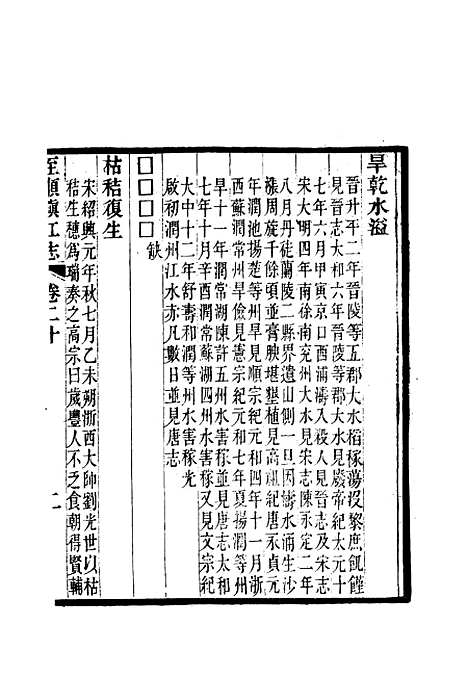 旱乾水溢
晉升平二年晉陵等五郡大水稻稼蕩投黎庶飢饉
見晉志太和六年晉陵等郡大水見廢帝紀太元十
七年六月甲寅京口西浦濤入殺人見晉志及宋志
宋大明四年南徐南兖州大水見宋志陳永定二年
八月丹徒蘭陵二縣界遺山側一旦因濤水涌生沙
漲周旋千餘頃並膏腴堪墾植見高祖紀唐永貞元
年潤池揚楚等州旱見順宗紀元和四年十一月浙
西蘇潤常州旱儉見憲宗紀元和七年夏揚潤等州
旱十一年潤常湖陳許五州水害稼並見唐志太和
七年十月辛酉潤常蘇湖四州水害稼又見文宗紀
大中十二年八月潤等州水害稼光
啟初潤州江水赤凡數日並見唐志
□□□□缺
枯秸復生
宋紹興元年秋七月乙未朔浙西大帥劉光世以枯
秸生穗爲瑞奏之高宗曰歲豐人不乏食朝得賢輔
至順鎮江志 卷二十 二